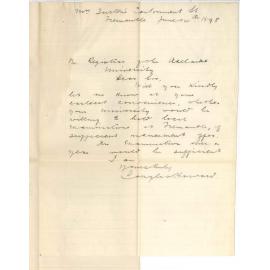 Mrs Tuxton's Cantonment St
Fremantle June 20th 1898
The Registrar of the Adelaide
University
Dear Sir,
Will you kindly
let me know at your
earliest convenience, whether
your University would be
willing to hold local
Examinations at Fremantle, if
sufficient inducement offers.
An Examination once a
year would be sufficient
I am
Yours truly
Douglas Howard